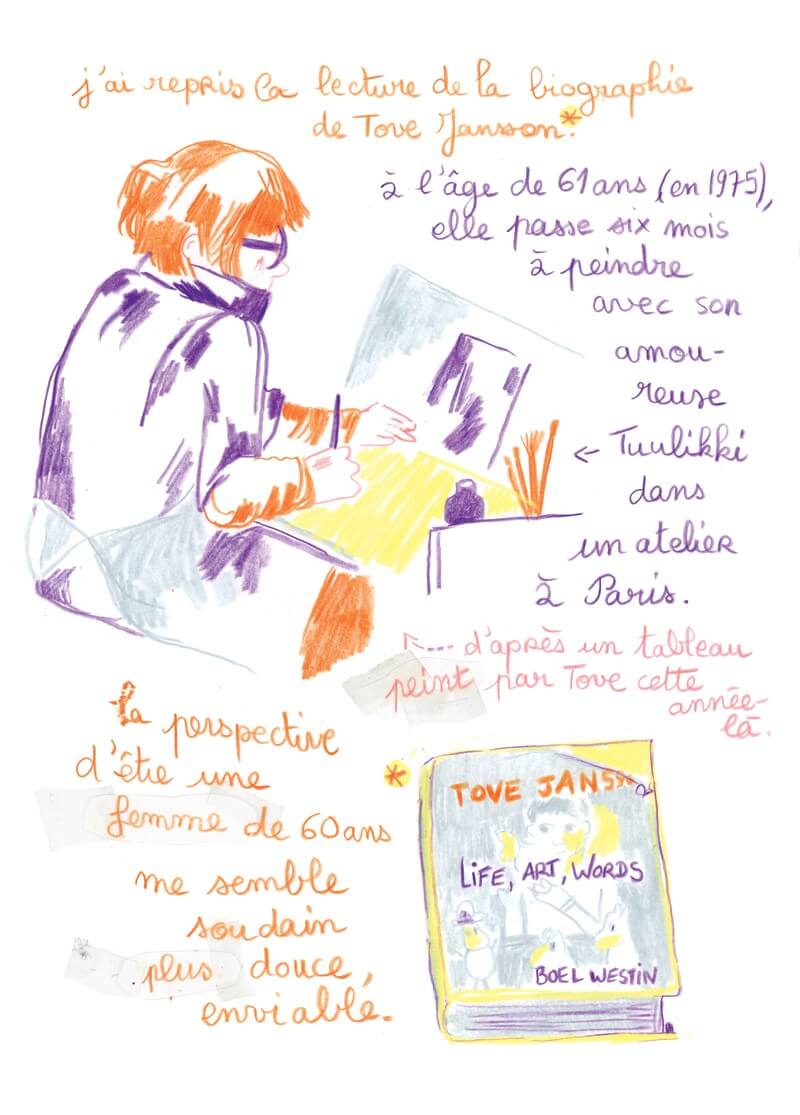 j'ai repris la lecture de la biographie
de Tove Jansson.*
à l'âge de 61 ans (en 1975),
elle passe six mois
à peindre
avec son
amou-
reuse
← Tuulikki
dans
un atelier
à Paris.
d'après un tableau
peint par Tove cette
année-
là.
la perspective
d'être une
femme de 60 ans
me semble
soudain
plus douce,
enviable.
*
TOVE JANSSON
LIFE, ART, WORDS
BOEL WESTIN